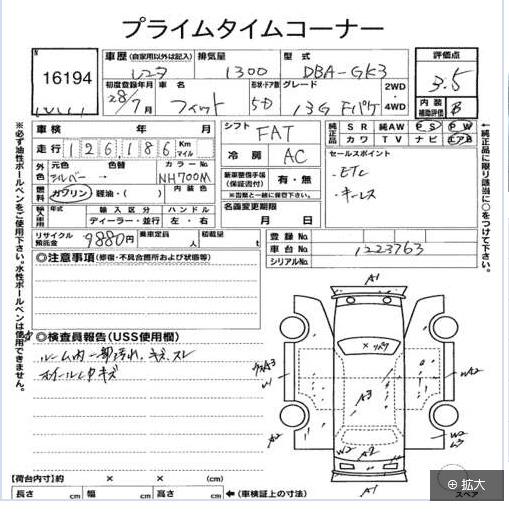 プライムタイムコーナー
16194
車歴(自家用以外は記入) 排気量 型式 評価点
レンタ 1300 DBA-GK3 3.5
初度登録年月 車名 形状・ドア数 グレード 2WD
28/7月 フィット 5D 13G Fパケ 4WD
内装補助評価 B
車検 年 月
走行 126,186 Km マイル
外色 元色 色替 カラーNo.
シルバー NH700M
燃料 ガソリン 軽油・( ) 内装色
輸入車用 年式 輸入区分 ハンドル
ディーラー・並行 左・右
リサイクル預託金 9880円 乗車定員 人 積載量 t
シフト FAT
冷房 AC
新車整備手帳(保証書付) 有・無
※当票と一緒に保管下さい。
名義変更期限
月 日
純正品 SR 純AW PS PW
カワ TV ナビ エアB
セールスポイント
・ETC
・キーレス
登録No.
車台No. 1223763
シリアルNo.
※必ず油性ボールペンをご使用下さい。水性ボールペンは使用できません。
↑純正品に限り該当に○をつけて下さい。
◎注意事項(修復・不具合箇所および状態等)
◎検査員報告(USS使用欄)
ルーム内一部汚れ、キズ、スレ
ホイールキズ
A1
×リペタ
A3
W1
W2
A2
W2
L3
W2
A2
A1
【荷台内寸】約 × × (cm)
長さ cm 幅 cm 高さ cm ←(車検証上の寸法)
スペア
拡大